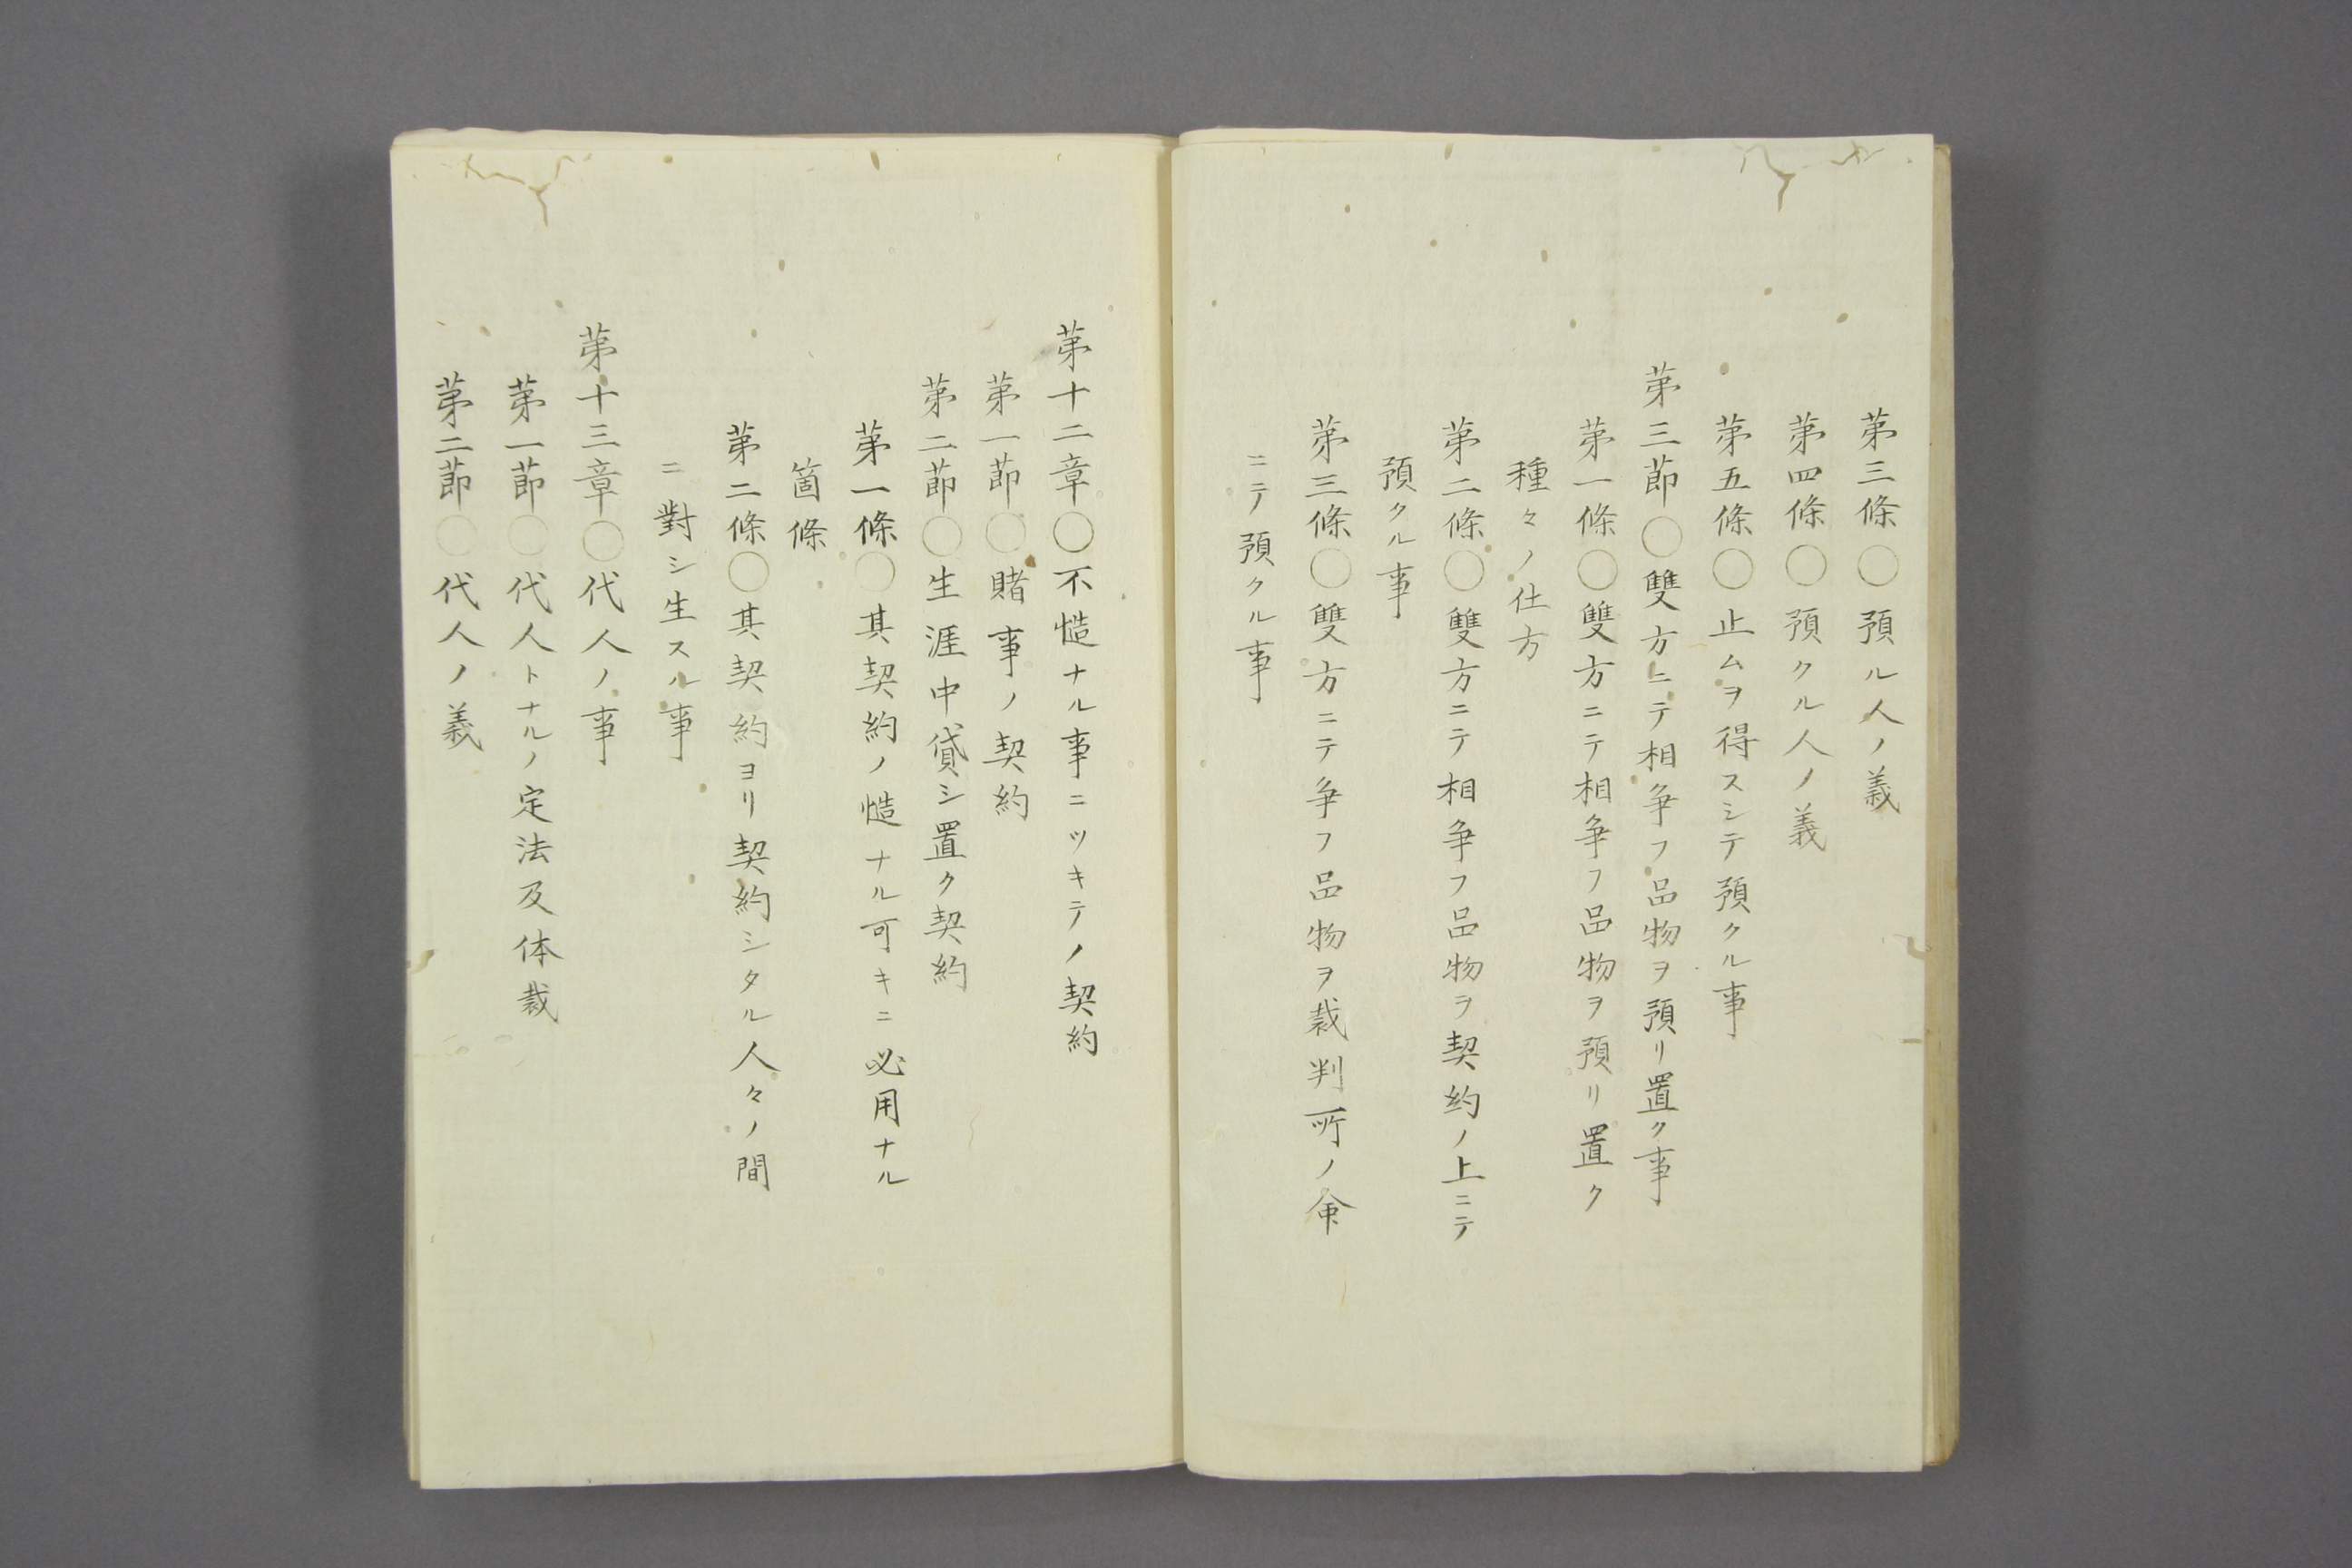 第三條○預ル人ノ義
第四條○預クル人ノ義
第五條○止ムヲ得スシテ預クル事
第三節○雙方ニテ相爭フ品物ヲ預リ置ク事
第一條○雙方ニテ相爭フ品物ヲ預リ置ク
種々ノ仕方
第二條○雙方ニテ相爭フ品物ヲ契約ノ上ニテ
預クル事
第三條○雙方ニテ爭フ品物ヲ裁判所ノ命
ニテ預クル事
第十二章○不慥ナル事ニツキテノ契約
第一節○賭事ノ契約
第二節○生涯中貸シ置ク契約
第一條○其契約ノ慥ナル可キニ必用ナル
箇條
第二條○其契約ヨリ契約シタル人々ノ間
ニ對シ生スル事
第十三章○代人ノ事
第一節○代人トナルノ定法及体裁
第二節○代人ノ義